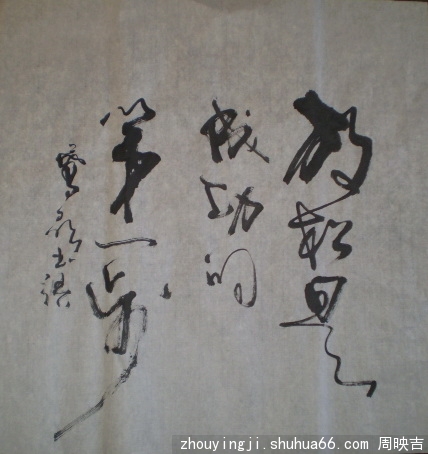 放松是
成功的
第一步
zhouyingji.shuhua66.com 周映吉